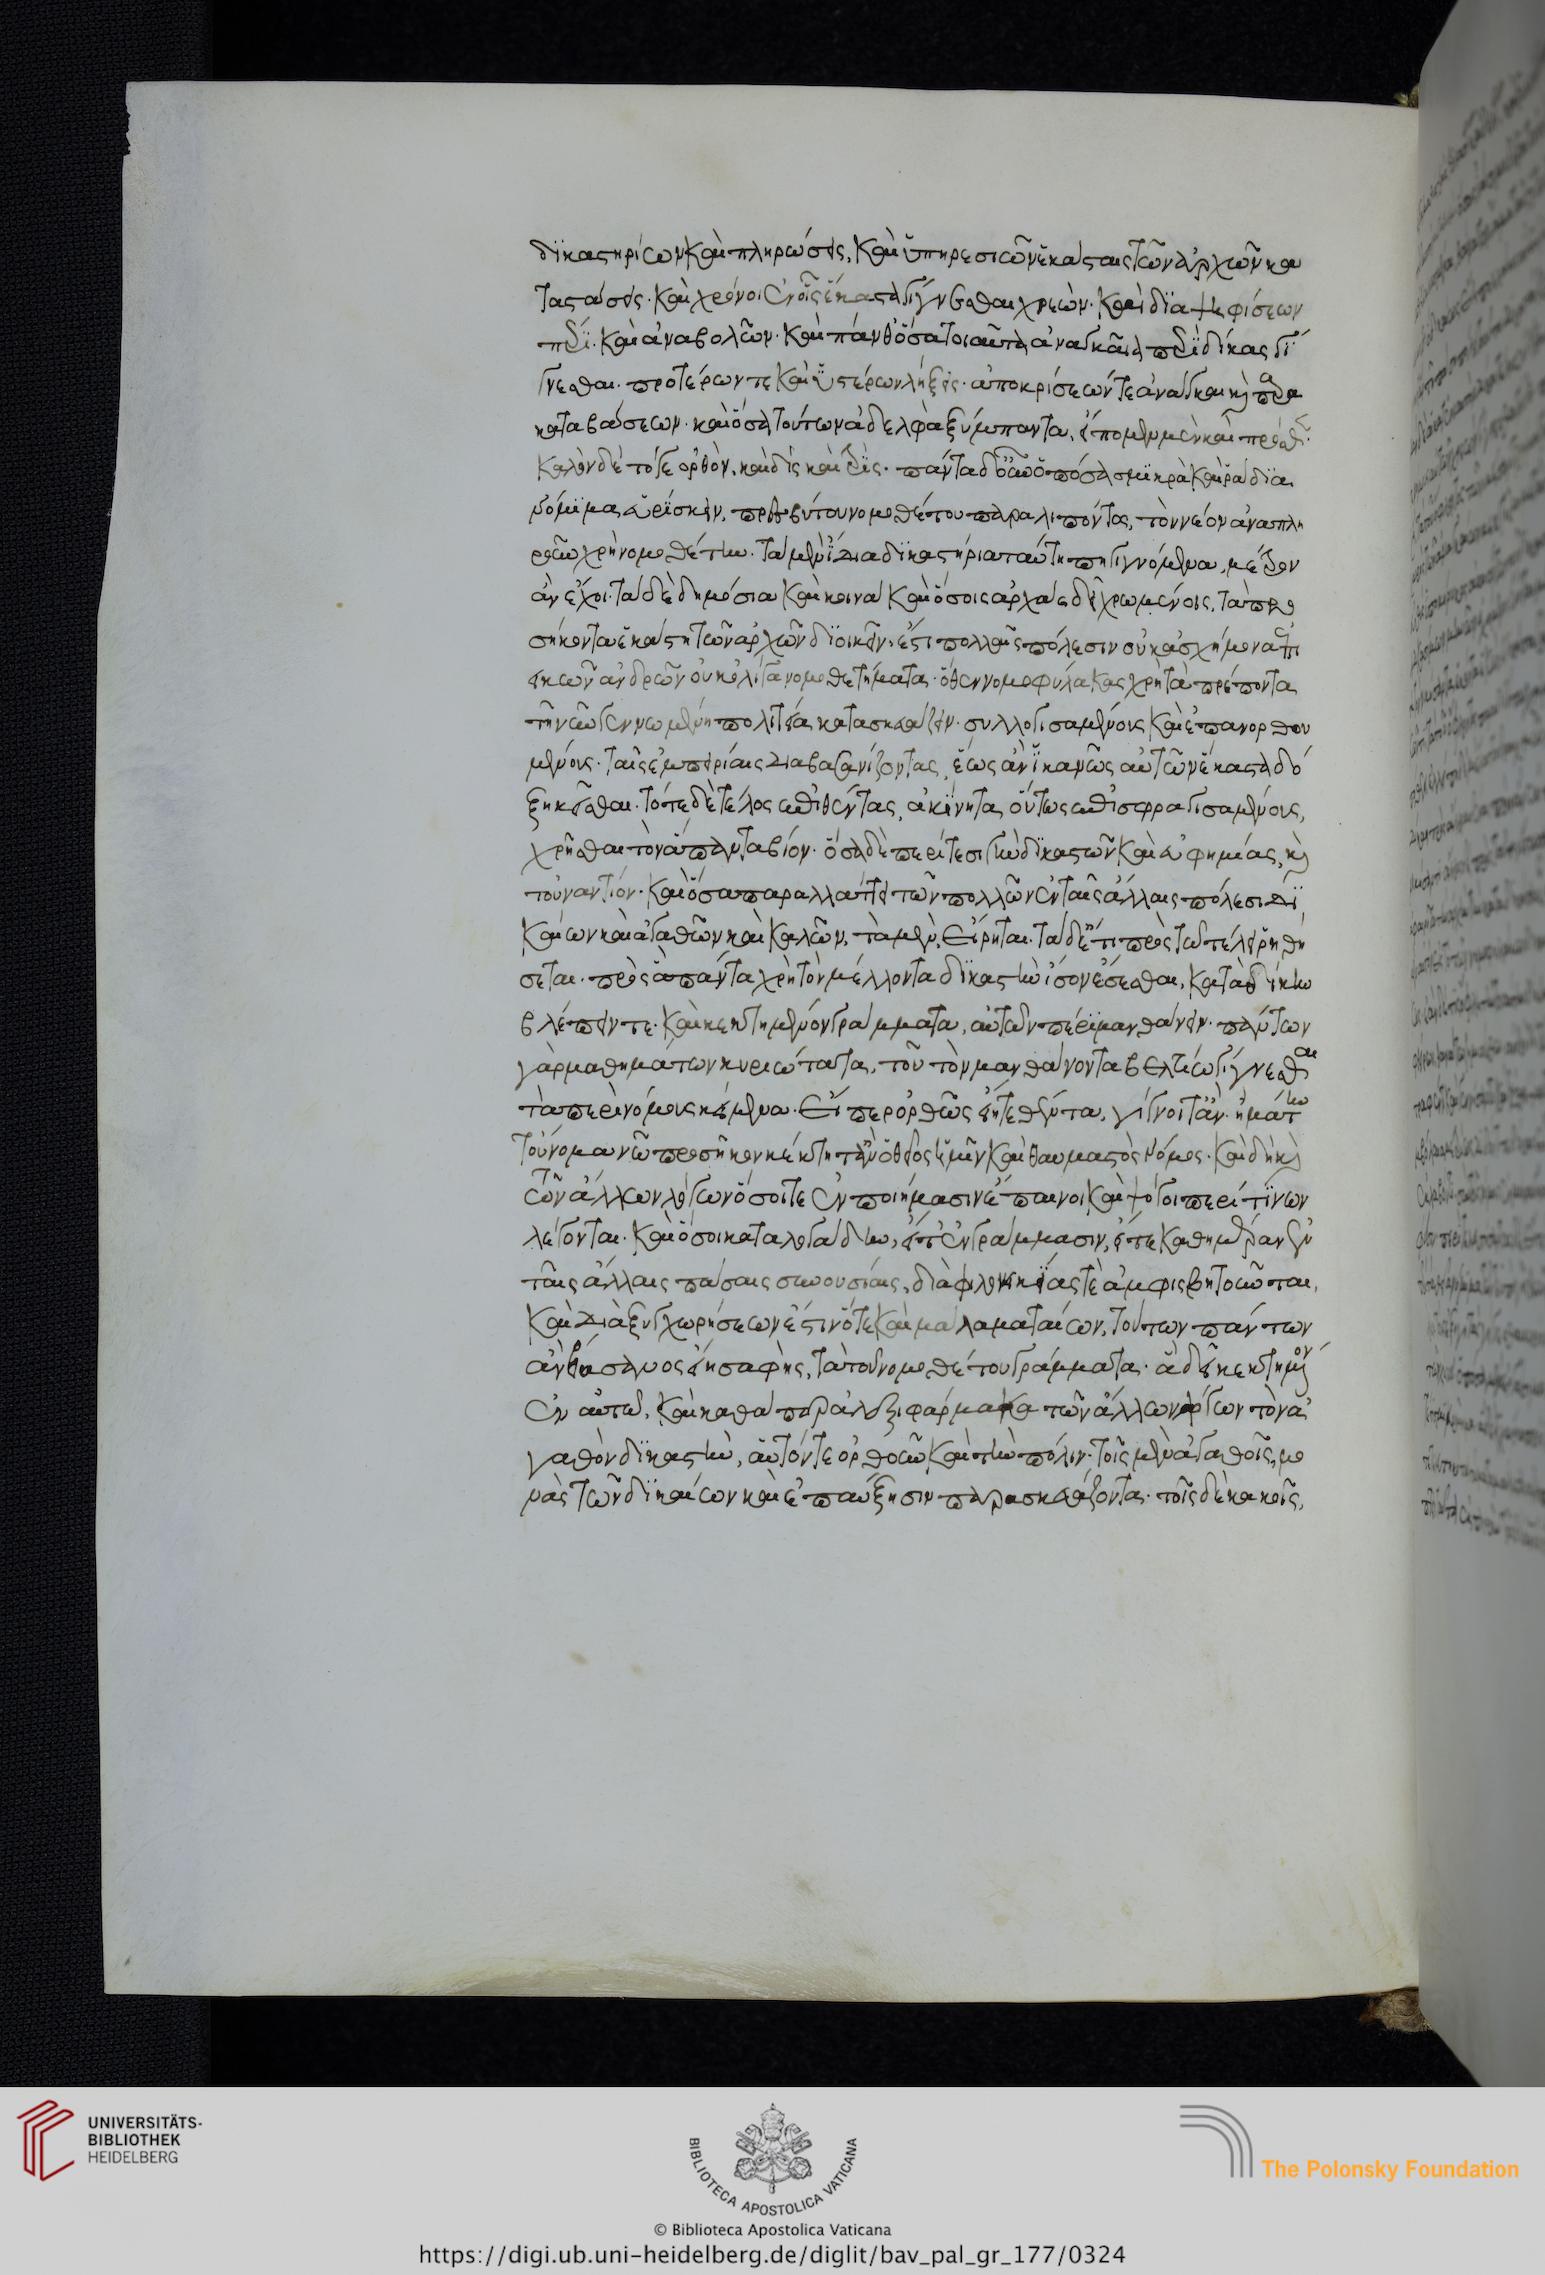 δϊκαστηρίων καὶ πληρώσεις, καὶ ὑπηρεσιῶν ἑκάσταις τῶν ἀρχῶν κα
τασάσεις· καὶ χρόνοι ἐν οἷς ἕκαστα γίγνεσθαι χρεών· καὶ δϊαψηφίσεων
πέρϊ· καὶ ἀναβολῶν· καὶ πάνθ᾽ ὅσα τοιαῦτα ἀναγκαῖα περϊ δίκας γί
γνεσθαι· προτέρων τε καὶ ὑστέρων λήξεις· ἀποκρίσεών τε ἀνάγκαι κ(αὶ) παρα
καταβάσεων· καὶ ὅσα τούτων ἀδελφὰ ξύμπαντα, εἴπομεν μὲν καὶ πρόσθεν·
καλὸν δὲ τό γε ὀρθὸν, καὶ δὶς καὶ τρΐς· πάντα δ᾽ οὖν ὁπόσα σμϊκρὰ καὶ ῥάδϊα
νόμϊμα εὑρΐσκειν, πρεσβύτου νομοθέτου παραλιπόντος, τὸν νέον ἀναπλη
ροῦν χρὴ νομοθέτην· τὰ μὲν ΐδια δϊκαστήρια ταύτη πη γιγνόμενα, μέτρον
ἂν ἔχοι· τὰ δὲ δημόσια καὶ κοινὰ καὶ ὅσοις ἀρχὰς δεῖ χρωμένοις, τὰ προ
σήκοντα ἑκάστη τῶν ἀρχῶν δϊοικεῖν, ἔστι πολλαῖς πόλεσιν οὐκ ἀσχήμονα ἐπι
εικῶν ἀνδρῶν οὐκ ὀλίγα νομοθετήματα· ὅθεν νομοφύλακας χρὴ τὰ πρέποντα
τῆ νῦν γεννωμένη πολιτεία κατασκευάζειν· συλλογισαμένους καὶ ἐπανορθου
μένους· ταῖς ἐμπειρίαις διαβασανίζοντας, ἕως ἂν ἱκανῶς αὐτῶν ἕκαστα δό
ξη κεῖσθαι· τότε δὲ τέλος ἐπιθέντας, ἀκίνητα οὕτως ἐπισφραγισαμένους,
χρῆσθαι τὸν ἅπαντα βίον· ὅσα δὲ περί τε σιγὴν δϊκαστῶν καὶ εὐφημίας, κ(αὶ)
τοὐναντίον· καὶ ὅσα παραλλάττει τῶν πολλῶν ἐν ταῖς ἄλλαις πόλεσι δϊ
καίων καὶ ἀγαθῶν καὶ καλῶν, τὰ μὲν, εἴρηται· τὰ δ᾽ ἔτι πρὸς τῶ τέλει ῥηθή
σεται· πρὸς ἃ πάντα χρὴ τὸν μέλλοντα δϊκαστὴν ἴσον ἔσεσθαι, κατὰ δίκην
βλέπειν τε· καὶ κεκτημένον γράμματα, αὐτῶν πέρϊ μανθάνειν· πάντων
γὰρ μαθημάτων κυριώτατα, τοῦ τὸν μανθάνοντα βελτίω γίγνεσθαι
τὰ περὶ νόμους κείμενα· εἴπερ ὀρθῶς εἴη τεθέντα, γίγνοιτ᾽ ἄν· ἢ μάτην
τοὔνομα νῶ προσῆκον κέκτητ᾽ ἂν ὁ θεῖος ἡμῖν καὶ θαυμαστὸς νόμος· καὶ δὴ κ(αὶ)
τῶν ἄλλων λόγων ὅσοι τε ἐν ποιήμασιν ἔπαινοι καὶ ψόγοι περί τϊνων
λέγονται· καὶ ὅσοι καταλογάδην, εἴτ᾽ ἐν γράμμασιν, εἴτε καθημέραν ἐν
ταῖς ἄλλαις πάσαις συνουσίαις, διὰ φιλονεικΐας τὲ ἀμφισβητοῦνται,
καὶ διὰ ξυγχωρήσεων ἔστιν ὅτε καὶ μάλα ματαίων, τούτων πάντων
ἂν βάσανος εἴη σαφὴς, τὰ τοῦ νομοθέτου γράμματα· ἃ δεῖ κεκτημένον
ἐν αὑτῶ, καὶ καθάπερ ἀλεξιφάρμακα τῶν ἄλλων λόγων τὸν ἀ
γαθὸν δϊκαστὴν, αὑτόν τε ὀρθοῦν καὶ τὴν πόλιν· τοῖς μὲν ἀγαθοῖς, μο
νὰς τῶν δϊκαίων καὶ ἐπαύξησιν παρασκευάζοντα· τοῖς δὲ κακοῖς,
UNIVERSITÄTS-
BIBLIOTHEK
HEIDELBERG
BIBLIOTECA APOSTOLICA VATICANA
The Polonsky Foundation
© Biblioteca Apostolica Vaticana
https://digi.ub.uni-heidelberg.de/diglit/bav_pal_gr_177/0324